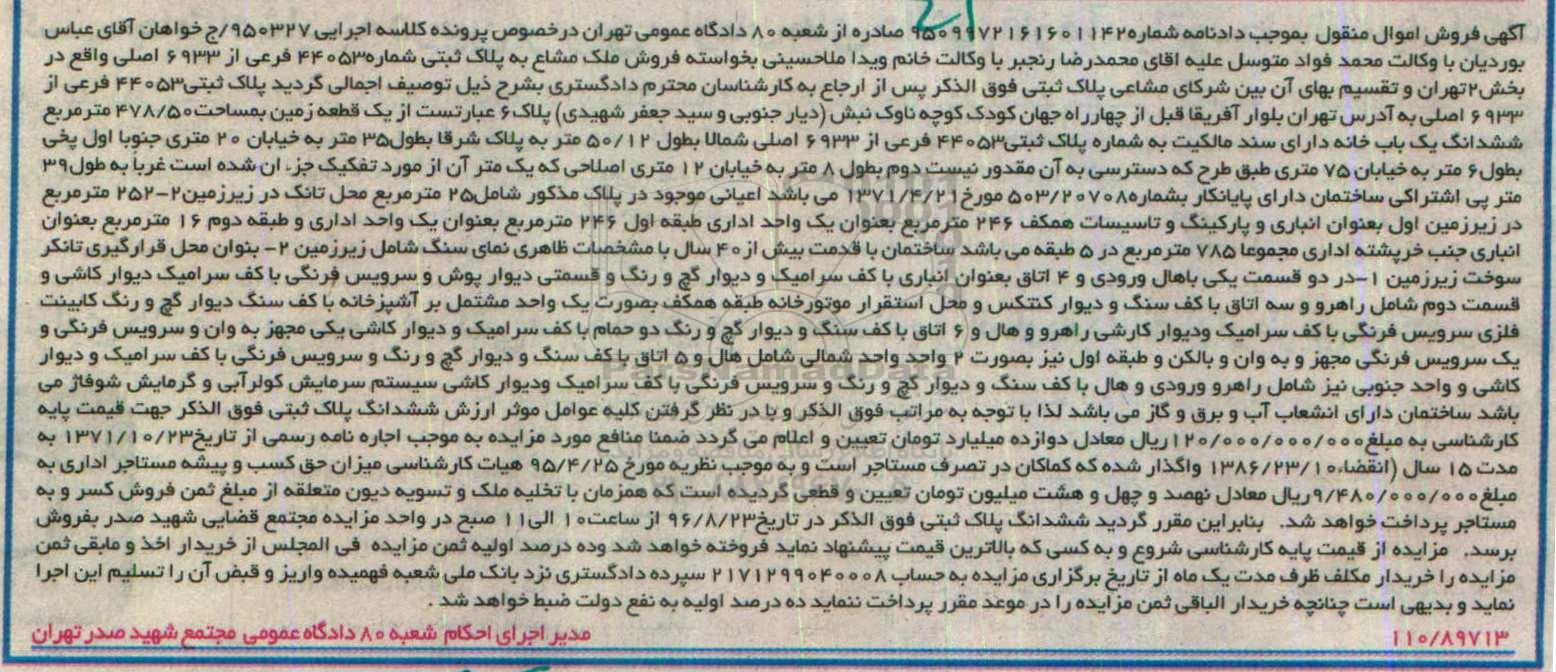 آگهی فروش اموال منقول بموجب دادنامه شماره۹۵۰۹۹۷۲۱۶۱۶۰۱۱۴۲ صادره از شعبه ۸۰ دادگاه عمومی تهران درخصوص پرونده کلاسه اجرایی ۹۵۰۳۲۷/ج خواهان آقای عباس
بوردیان با وکالت محمد فواد متوسل علیه اقای محمدرضا رنجبر با وکالت خانم ویدا ملاحسینی بخواسته فروش ملک مشاع به پلاک ثبتی شماره۴۴۰۵۳ فرعی از ۶۹۳۳ اصلی واقع در
بخش۲تهران و تقسیم بهای آن بین شرکای مشاعی پلاک ثبتی فوق الذکر پس از ارجاع به کارشناسان محترم دادگستری بشرح ذیل توصیف اجمالی گردید پلاک ثبتی۴۴۰۵۳ فرعی از
۶۹۳۳ اصلی به آدرس تهران بلوار آفریقا قبل از چهارراه جهان کودک کوچه ناوک نبش (دیار جنوبی و سید جعفر شهیدی) پلاک۶ عبارتست از یک قطعه زمین بمساحت۴۷۸/۵۰ مترمربع
ششدانگ یک باب خانه دارای سند مالکیت به شماره پلاک ثبتی۴۴۰۵۳ فرعی از ۶۹۳۳ اصلی شمالا بطول ۵۰/۱۲ متر به پلاک شرقا بطول۳۵ متر به خیابان ۲۰ متری جنوبا اول پخی
بطول۶ متر به خیابان ۷۵ متری طبق طرح که دسترسی به آن مقدور نیست دوم بطول ۸ متر به خیابان ۱۲ متری اصلاحی که یک متر آن از مورد تفکیک جزء ان شده است غرباً به طول۳۹
متر پی اشتراکی ساختمان دارای پایانکار بشماره۵۰۳/۲۰۷۰۸ مورخ ۱۳۷۱/۴/۲۱ می باشد اعیانی موجود در پلاک مذکور شامل۲۵ مترمربع محل تانک در زیرزمین۲-۲۵۲ مترمربع
در زیرزمین اول بعنوان انباری و پارکینگ و تاسیسات همکف ۲۴۶ مترمربع بعنوان یک واحد اداری طبقه اول ۲۴۶ مترمربع بعنوان یک واحد اداری و طبقه دوم ۱۶ مترمربع بعنوان
انباری جنب خرپشته اداری مجموعا ۷۸۵ مترمربع در ۵ طبقه می باشد ساختمان با قدمت بیش از ۴۰ سال با مشخصات ظاهری نمای سنگ شامل زیرزمین ۲- بنوان محل قرارگیری تانکر
سوخت زیرزمین ۱-در دو قسمت یکی باهال ورودی و ۴ اتاق بعنوان انباری با کف سرامیک و دیوار گچ و رنگ و قسمتی دیوار پوش و سرویس فرنگی با کف سرامیک دیوار کاشی و
قسمت دوم شامل راهرو و سه اتاق با کف سنگ و دیوار کنتکس و محل استقرار موتورخانه طبقه همکف بصورت یک واحد مشتمل بر آشپزخانه با کف سنگ دیوار گچ و رنگ کابینت
فلزی سرویس فرنگی با کف سرامیک ودیوار کارشی راهرو و هال و ۶ اتاق با کف سنگ و دیوار گچ و رنگ دو حمام با کف سرامیک و دیوار کاشی یکی مجهز به وان و سرویس فرنگی و
یک سرویس فرنگی مجهز و به وان و بالکن و طبقه اول نیز بصورت ۲ واحد واحد شمالی شامل هال و ۵ اتاق با کف سنگ و دیوار گچ و رنگ و سرویس فرنگی با کف سرامیک و دیوار
کاشی و واحد جنوبی نیز شامل راهرو ورودی و هال با کف سنگ و دیوار گچ و رنگ و سرویس فرنگی با کف سرامیک ودیوار کاشی سیستم سرمایش کولرآبی و گرمایش شوفاژ می
باشد ساختمان دارای انشعاب آب و برق و گاز می باشد لذا با توجه به مراتب فوق الذکر و با در نظر گرفتن کلیه عوامل موثر ارزش ششدانگ پلاک ثبتی فوق الذکر جهت قیمت پایه
کارشناسی به مبلغ۱۲۰/۰۰۰/۰۰۰/۰۰۰ریال معادل دوازده میلیارد تومان تعیین و اعلام می گردد ضمنا منافع مورد مزایده به موجب اجاره نامه رسمی از تاریخ۱۳۷۱/۱۰/۲۳ به
مدت ۱۵ سال (انقضاء۱۳۸۶/۲۳/۱۰ واگذار شده که کماکان در تصرف مستاجر است و به موجب نظریه مورخ ۹۵/۴/۲۵ هیات کارشناسی میزان حق کسب و پیشه مستاجر اداری به
مبلغ۹/۴۸۰/۰۰۰/۰۰۰ریال معادل نهصد و چهل و هشت میلیون تومان تعیین و قطعی گردیده است که همزمان با تخلیه ملک و تسویه دیون متعلقه از مبلغ ثمن فروش کسر و به
مستاجر پرداخت خواهد شد. بنابراین مقرر گردید ششدانگ پلاک ثبتی فوق الذکر در تاریخ۹۶/۸/۲۳ از ساعت۱۰ الی۱۱ صبح در واحد مزایده مجتمع قضایی شهید صدر بفروش
برسد. مزایده از قیمت پایه کارشناسی شروع و به کسی که بالاترین قیمت پیشنهاد نماید فروخته خواهد شد وده درصد اولیه ثمن مزایده فی المجلس از خریدار اخذ و مابقی ثمن
مزایده را خریدار مکلف ظرف مدت یک ماه از تاریخ برگزاری مزایده به حساب ۲۱۷۱۲۹۹۰۴۰۰۰۸ سپرده دادگستری نزد بانک ملی شعبه فهمیده واریز و قبض آن را تسلیم این اجرا
نماید و بدیهی است چنانچه خریدار الباقی ثمن مزایده را در موعد مقرر پرداخت ننماید ده درصد اولیه به نفع دولت ضبط خواهد شد .
۱۱۰/۸۹۷۱۳ مدیر اجرای احکام شعبه ۸۰ دادگاه عمومی مجتمع شهید صدر تهران
ParsNamadData